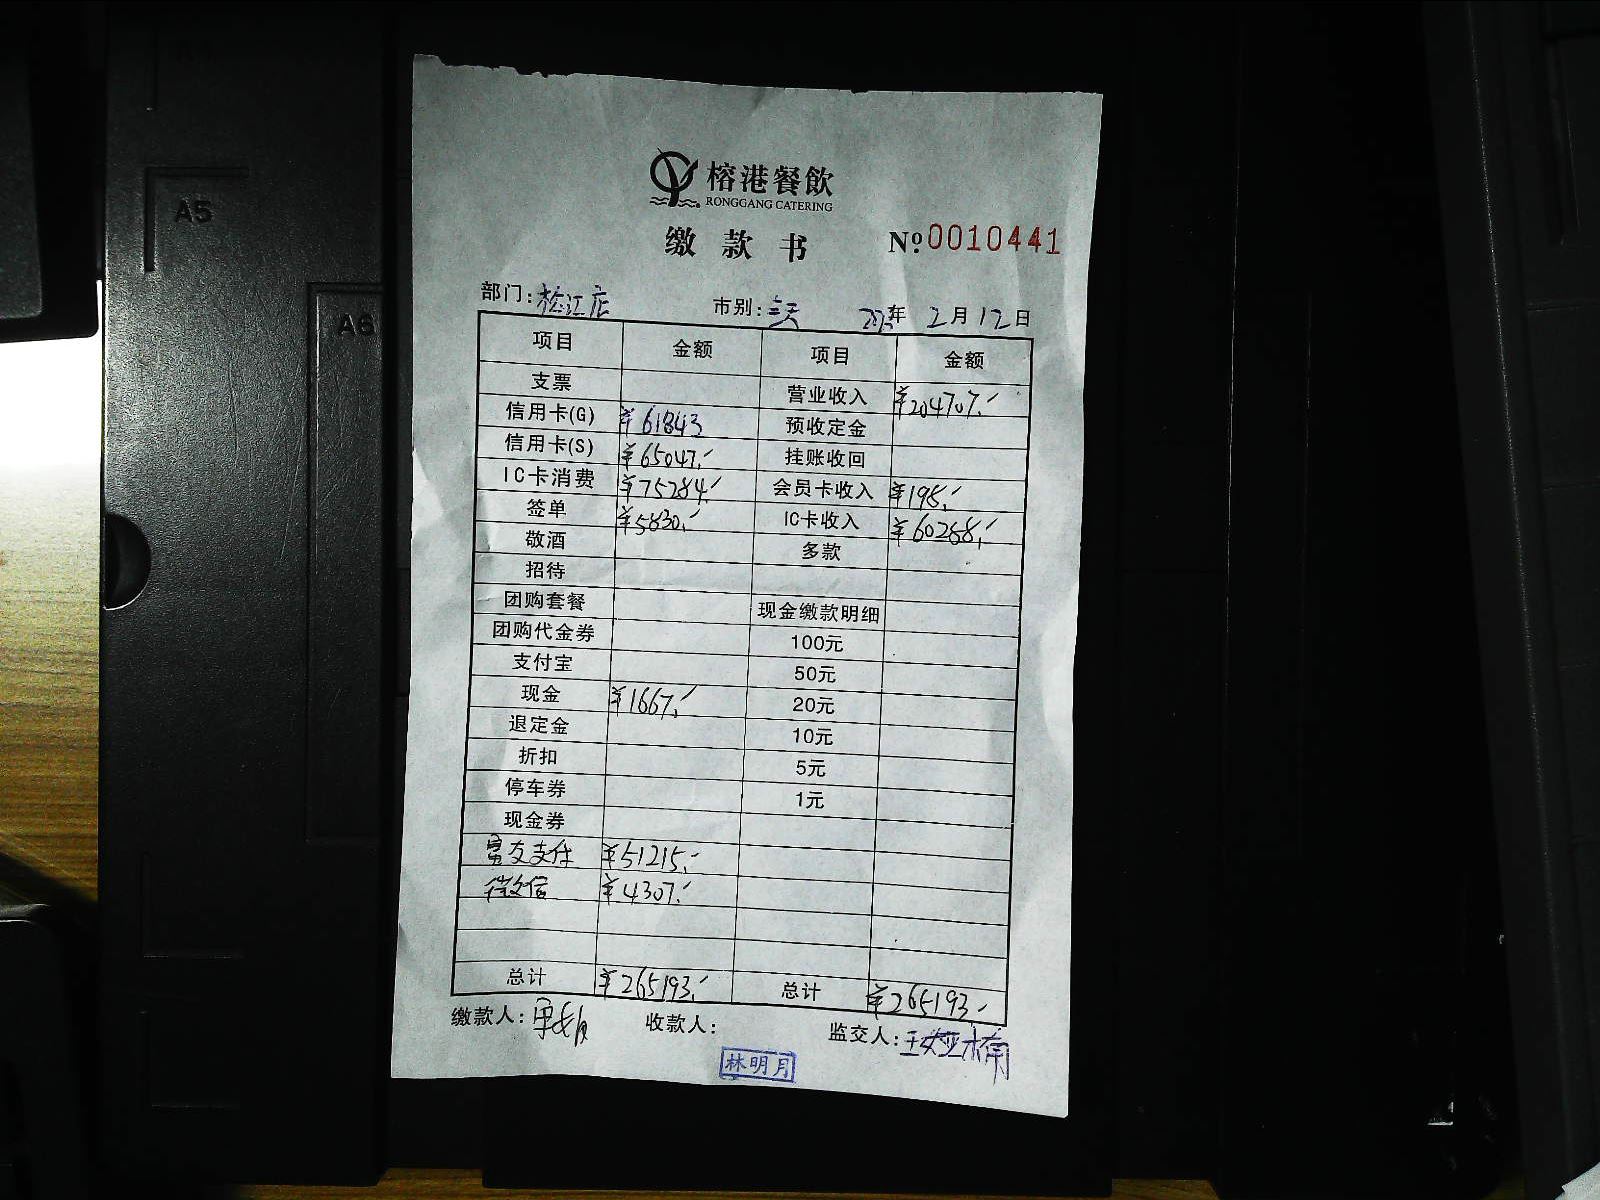 A4
A5
A6
榕港餐飲
RONGGANG CATERING
缴款书
№ 0010441
部门：松江店 市别： 年 2月12日
项目 金额 项目 金额
支票 营业收入 ¥204707.-
信用卡(G) ¥61843 预收定金
信用卡(S) ¥65047.- 挂账收回
IC卡消费 ¥75284.- 会员卡收入 ¥198.-
签单 ¥5830.- IC卡收入 ¥60288.-
敬酒 多款
招待
团购套餐 现金缴款明细
团购代金券 100元
支付宝 50元
现金 ¥1667.- 20元
退定金 10元
折扣 5元
停车券 1元
现金券
富友支付 ¥51215.-
微信 ¥4307.-
总计 ¥265193.- 总计 ¥265193.-
缴款人： 收款人： 监交人：王娅楠
林明月